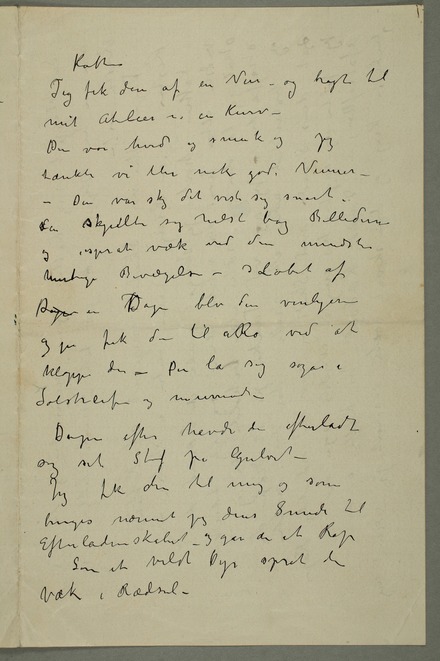 Katten
Jeg fik den af en Ven – og bragte til
mit Atelier i en Kurv –
Den var hvid og smuk og jeg
tænkte vi blev nok gode Venner –
– Den var sky det viste sig snart.
Den skjulte sig helst bag Billederne
og sprat væk ved den mindste
Bevægelse – I Løbet af
en Dag blev den venligere
og jeg fik den til at ved at
klappe den – Den la sig sogar i
Solstriben og
Dagen efter havde den efterladt
sig set på Gulvet –
Jeg fik den til mig og som
bruges nærmet jeg dens Snude til
Efterladenskabet – og gav den et Rap
Som et vildt Dyr sprat den
væk i Rædsel –